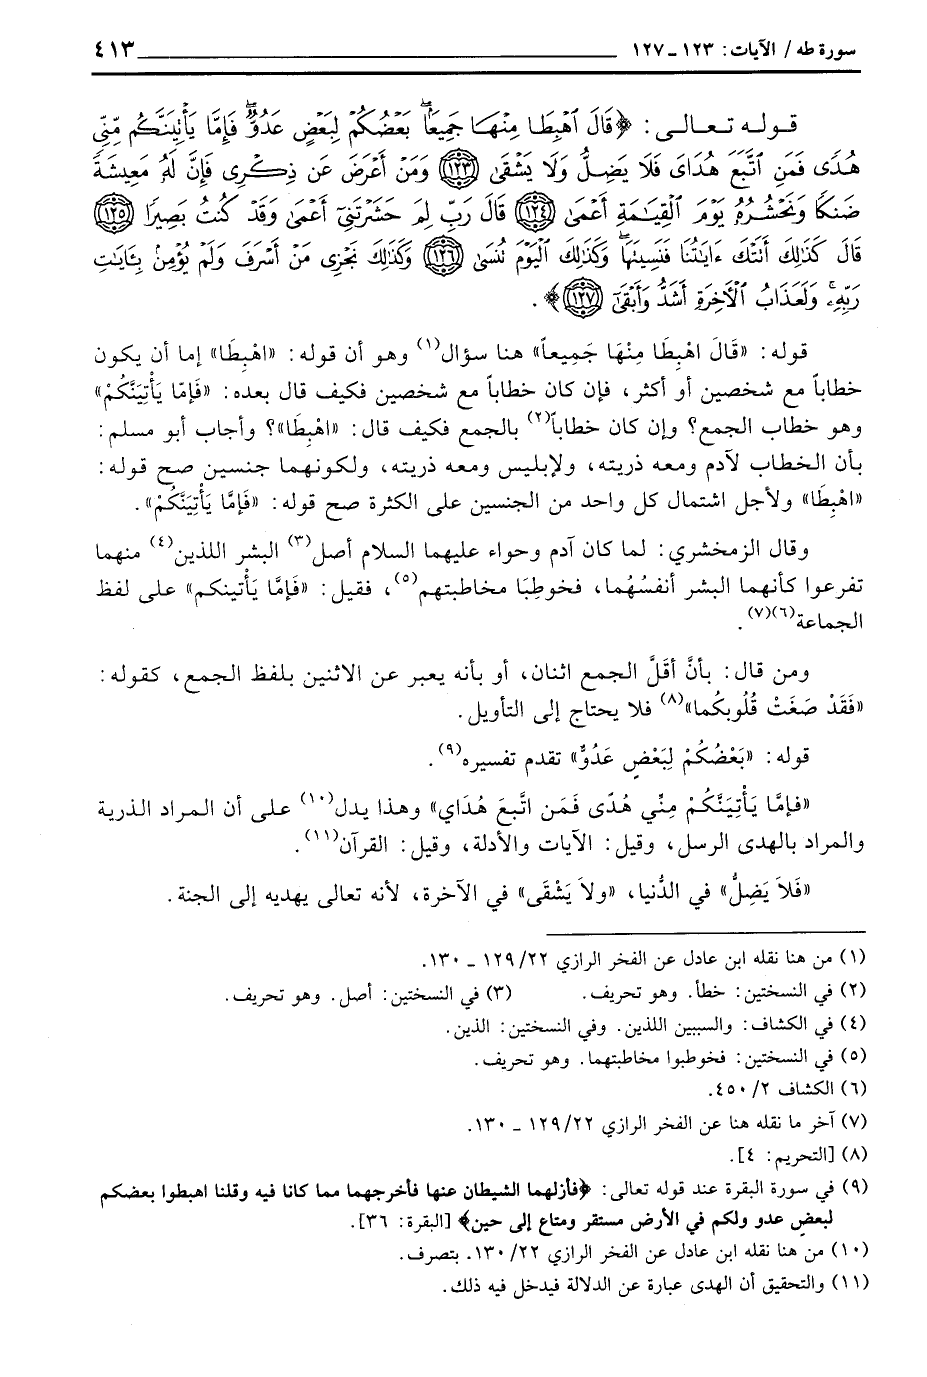 سورة طه / الآيات : ١٢٣ ـ ١٢٧ ٤١٣
قوله تعالى : ﴿قَالَ ٱهْبِطَا مِنْهَا جَمِيعًۢا بَعْضُكُمْ لِبَعْضٍ عَدُوٌّ فَإِمَّا يَأْتِيَنَّكُم مِّنِّي
هُدًى فَمَنِ ٱتَّبَعَ هُدَايَ فَلَا يَضِلُّ وَلَا يَشْقَىٰ ﴿١٢٣﴾ وَمَنْ أَعْرَضَ عَن ذِكْرِي فَإِنَّ لَهُۥ مَعِيشَةً
ضَنكًا وَنَحْشُرُهُۥ يَوْمَ ٱلْقِيَـٰمَةِ أَعْمَىٰ ﴿١٢٤﴾ قَالَ رَبِّ لِمَ حَشَرْتَنِيٓ أَعْمَىٰ وَقَدْ كُنتُ بَصِيرًا ﴿١٢٥﴾
قَالَ كَذَٰلِكَ أَتَتْكَ ءَايَـٰتُنَا فَنَسِيتَهَا وَكَذَٰلِكَ ٱلْيَوْمَ تُنسَىٰ ﴿١٢٦﴾ وَكَذَٰلِكَ نَجْزِي مَنْ أَسْرَفَ وَلَمْ يُؤْمِنۢ بِـَٔايَـٰتِ
رَبِّهِۦ وَلَعَذَابُ ٱلْـَٔاخِرَةِ أَشَدُّ وَأَبْقَىٰٓ ﴿١٢٧﴾﴾ .
قوله : «قَالَ اهْبِطَا مِنْهَا جَمِيعاً» هنا سؤال(١) وهو أن قوله : «اهْبِطَا» إما أن يكون
خطاباً مع شخصين أو أكثر ، فإن كان خطاباً مع شخصين فكيف قال بعده : «فَإمّا يَأْتِيَنَّكُمْ»
وهو خطاب الجمع؟ وإن كان خطاباً(٢) بالجمع فكيف قال : «اهْبِطَا»؟ وأجاب أبو مسلم :
بأن الخطاب لآدم ومعه ذريته، ولإبليس ومعه ذريته، ولكونهما جنسين صح قوله :
«اهْبِطَا» ولأجل اشتمال كل واحد من الجنسين على الكثرة صح قوله : «فَإمَّا يَأْتِيَنَّكُمْ» .
وقال الزمخشري : لما كان آدم وحواء عليهما السلام أصل(٣) البشر اللذين(٤) منهما
تفرعوا كأنهما البشر أنفسُهُما، فخوطِبَا مخاطبتهم(٥)، فقيل : «فَإمَّا يَأْتينكم» على لفظ
الجماعة(٦)(٧) .
ومن قال : بأنَّ أقَلَّ الجمع اثنان، أو بأنه يعبر عن الاثنين بلفظ الجمع، كقوله :
«فَقَدْ صَغَتْ قُلُوبكُما»(٨) فلا يحتاج إلى التأويل .
قوله : «بَعْضُكُمْ لِبَعْضٍ عَدُوٌّ» تقدم تفسيره(٩) .
«فإمَّا يَأْتِيَنَّكُمْ مِنِّي هُدًى فَمَن اتَّبعَ هُدَاي» وهذا يدل(١٠) على أن المراد الذرية
والمراد بالهدى الرسل، وقيل : الآيات والأدلة، وقيل : القرآن(١١) .
«فَلاَ يَضِلُّ» في الدُّنيا، «ولاَ يَشْقَى» في الآخرة، لأنه تعالى يهديه إلى الجنة .
(١) من هنا نقله ابن عادل عن الفخر الرازي ٢٢/ ١٢٩ ـ ١٣٠.
(٢) في النسختين : خطأ. وهو تحريف. (٣) في النسختين : أصل. وهو تحريف.
(٤) في الكشاف : والسببين اللذين. وفي النسختين : الذين.
(٥) في النسختين : فخوطبوا مخاطبتهما. وهو تحريف.
(٦) الكشاف ٢/ ٤٥٠.
(٧) آخر ما نقله هنا عن الفخر الرازي ٢٢/ ١٢٩ ـ ١٣٠.
(٨) [التحريم : ٤].
(٩) في سورة البقرة عند قوله تعالى : ﴿فأزلهما الشيطان عنها فأخرجهما مما كانا فيه وقلنا اهبطوا بعضكم
لبعضٍ عدو ولكم في الأرض مستقر ومتاع إلى حين﴾ [البقرة : ٣٦].
(١٠) من هنا نقله ابن عادل عن الفخر الرازي ٢٢/ ١٣٠. بتصرف.
(١١) والتحقيق أن الهدى عبارة عن الدلالة فيدخل فيه ذلك.